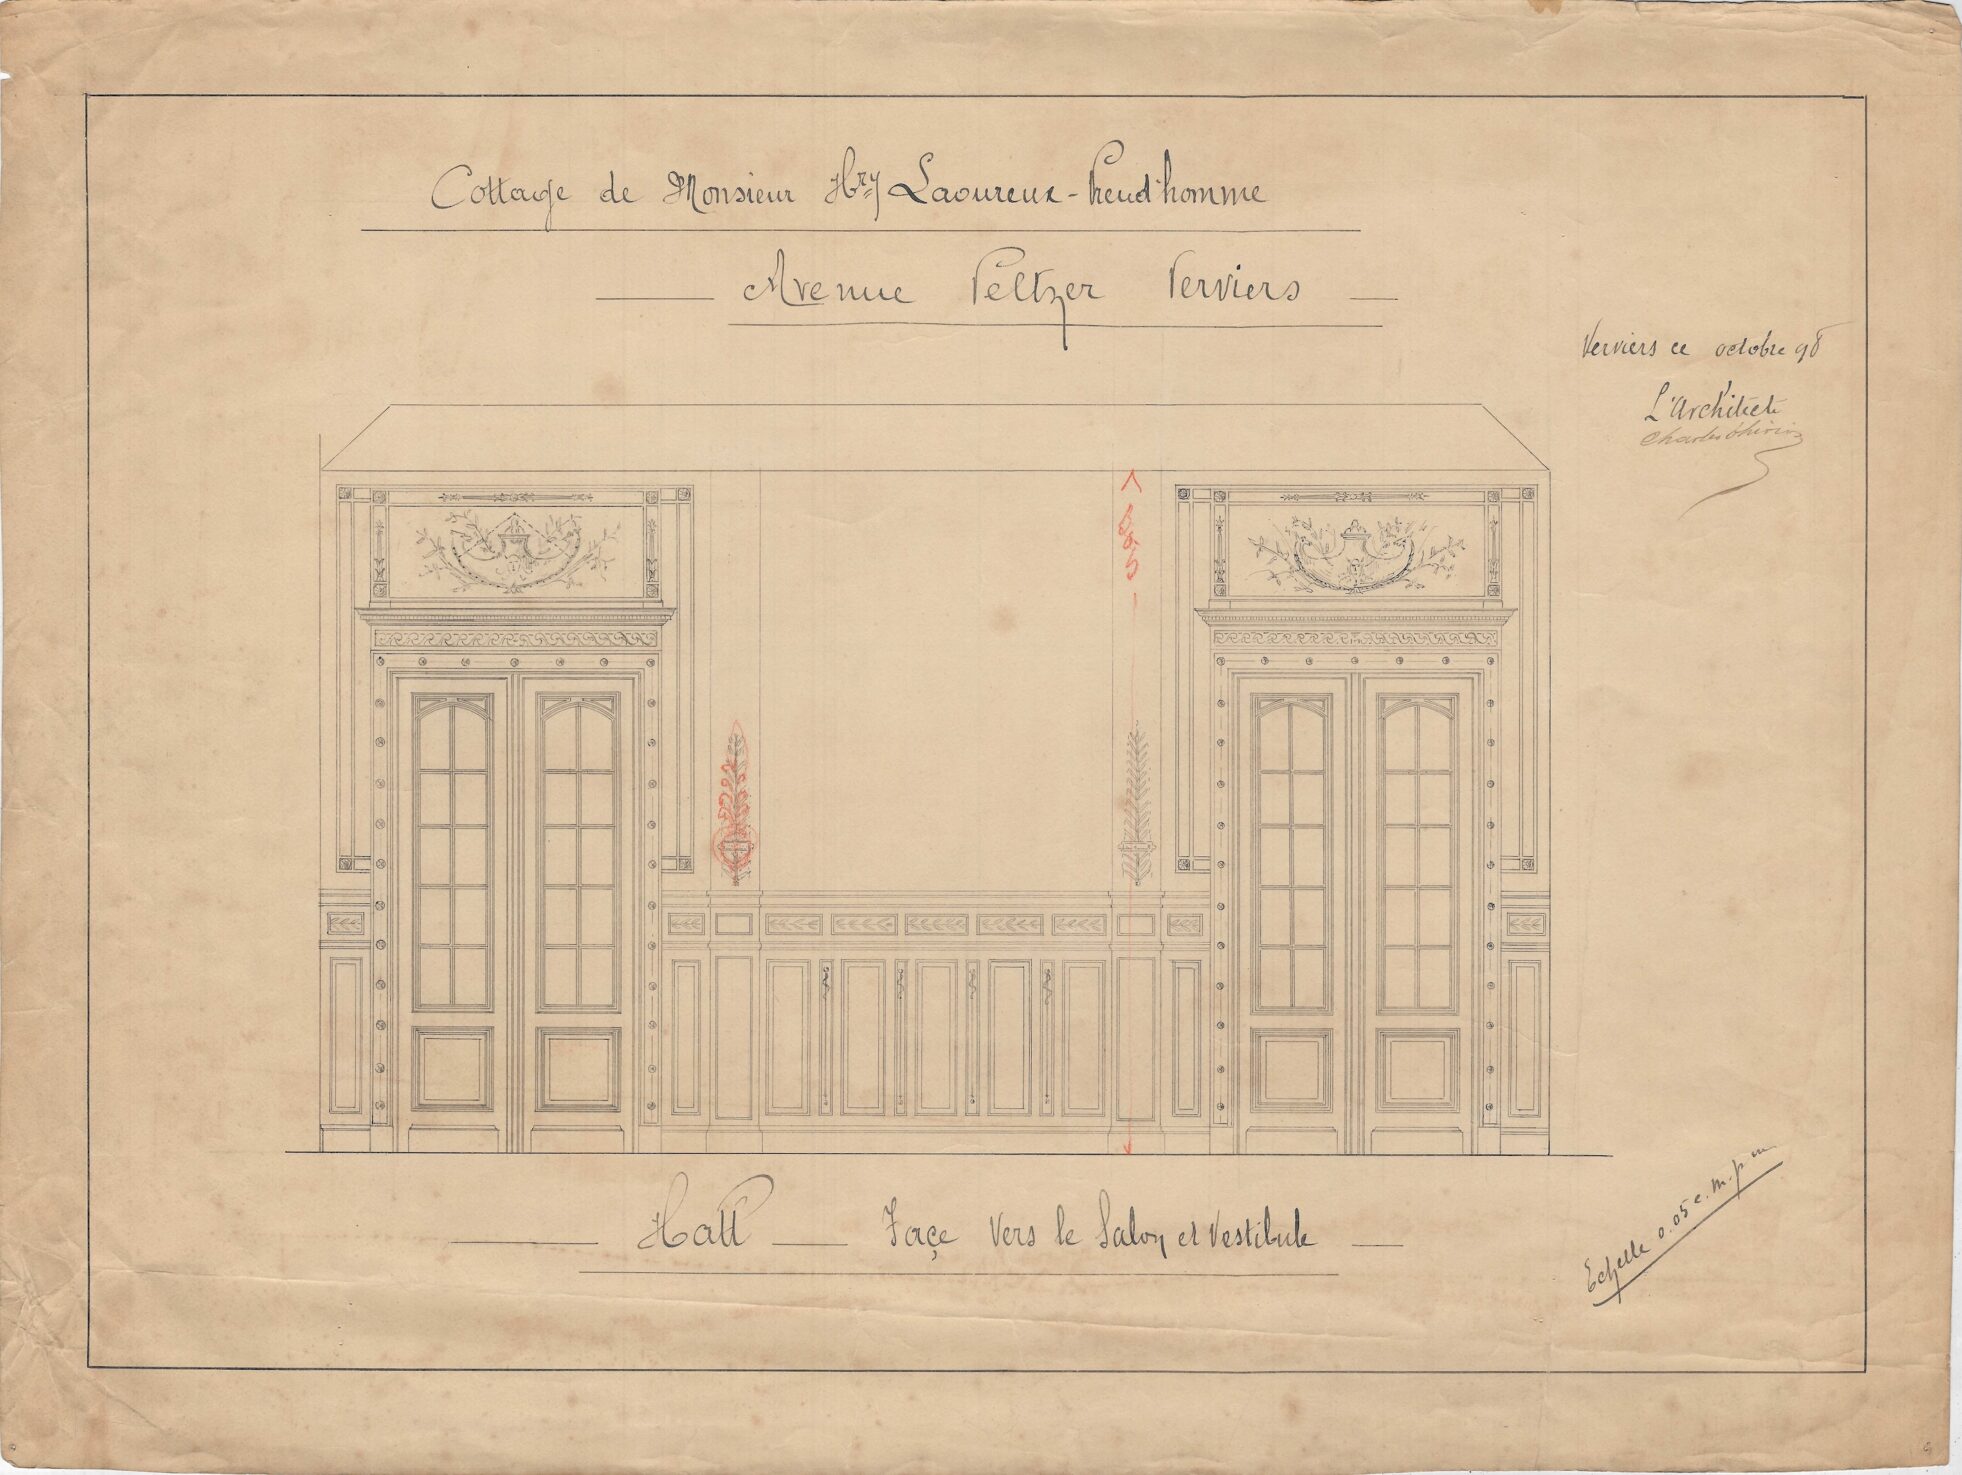 Cottage de Monsieur Hry Laoureux-Preud'homme
Avenue Peltzer Verviers
Verviers ce octobre 98
L'Architecte
Charles Thirion
Hall Façe Vers le Salon et Vestibule
Echelle 0.05 c.m. p m